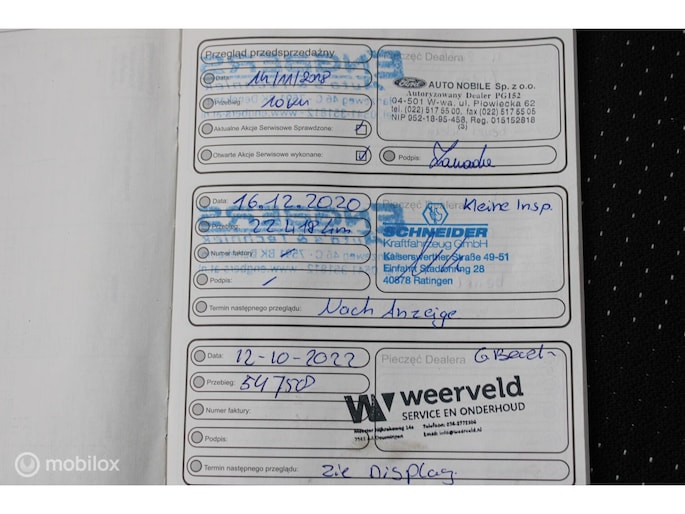 Przegląd przedsprzedażny
Pieczęć Dealera
Data: 14/11/2018
Ford AUTO NOBILE Sp. z o.o.
Autoryzowany Dealer PG182
04-501 W-wa, ul. Płowiecka 62
Przebieg: 10 km
tel. (022) 517 55 00, fax (022) 517 55 05
NIP 952-18-95-458, Reg. 015152818
(3)
Aktualne Akcje Serwisowe Sprawdzone:
Otwarte Akcje Serwisowe wykonane:
Podpis:
Data: 16.12.2020
Pieczęć Dealera Kleine Insp.
Przebieg: 22.418 km
SCHNEIDER
Kraftfahrzeug GmbH
Numer faktury:
Kaiserswerther Straße 49-51
Einfahrt Stadionring 28
Podpis:
40878 Ratingen
Termin następnego przeglądu: Nach Anzeige
Data: 12-10-2022
Pieczęć Dealera
Przebieg: 54758
weerveld
SERVICE EN ONDERHOUD
Numer faktury:
Email: info@weerveld.nl
Podpis:
Termin następnego przeglądu: Zie Display.
mobilox